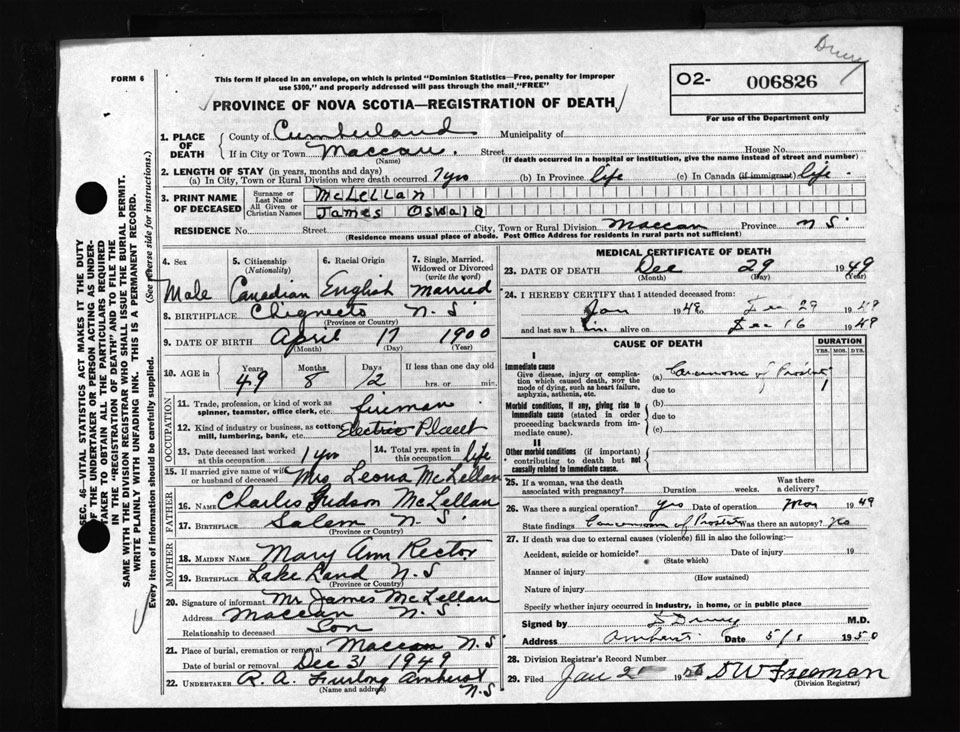 Drury
FORM 6
This form if placed in an envelope, on which is printed "Dominion Statistics—Free, penalty for improper
use $300," and properly addressed will pass through the mail "FREE"
O2- 006826
For use of the Department only
PROVINCE OF NOVA SCOTIA—REGISTRATION OF DEATH
1. PLACE OF DEATH
County of Cumberland Municipality of
If in City or Town Maccan. Street House No.
(Name) (If death occurred in a hospital or institution, give the name instead of street and number)
2. LENGTH OF STAY (in years, months and days)
(a) In City, Town or Rural Division where death occurred 7 yrs (b) In Province life (c) In Canada (if immigrant) life.
3. PRINT NAME OF DECEASED
Surname or Last Name McLellan
All Given or Christian Names James Oswald
RESIDENCE No. Street City, Town or Rural Division Maccan Province N S
(Residence means usual place of abode. Post Office Address for residents in rural parts not sufficient)
4. Sex 5. Citizenship (Nationality) 6. Racial Origin 7. Single, Married, Widowed or Divorced (write the word)
Male Canadian English Married
8. BIRTHPLACE Chignecto N.S.
(Province or Country)
9. DATE OF BIRTH April 17 1900
(Month) (Day) (Year)
10. AGE in Years Months Days If less than one day old
49 8 12 hrs. or min.
OCCUPATION
11. Trade, profession or kind of work as spinner, teamster, office clerk, etc. fireman
12. Kind of industry or business, as cotton mill, lumbering, bank, etc. Electric Plant
13. Date deceased last worked at this occupation 1 yr 14. Total yrs. spent in this occupation life
15. If married give name of wife or husband of deceased Mrs Leona McLellan
FATHER
16. NAME Charles Judson McLellan
17. BIRTHPLACE Salem N.S.
(Province or Country)
MOTHER
18. MAIDEN NAME Mary Ann Rector
19. BIRTHPLACE Lake Land N.S
(Province or Country)
20. Signature of informant Mr James McLellan
Address Maccan N.S.
Relationship to deceased Son
21. Place of burial, cremation or removal Maccan N.S
Date of burial or removal Dec 31 1949
22. UNDERTAKER R. A. Furlong Amherst
(Name and address) N.S
MEDICAL CERTIFICATE OF DEATH
23. DATE OF DEATH Dec 29 1949
(Month) (Day) (Year)
24. I HEREBY CERTIFY that I attended deceased from:
Jan 1949 to Dec 29 1949
and last saw him alive on Dec 16 1949
CAUSE OF DEATH DURATION
YRS. MOS. DYS.
I
Immediate cause
Give disease, injury or complication which caused death, NOT the mode of dying, such as heart failure, asphyxia, asthenia, etc.
(a) Carcinoma of Prostate 1
due to
Morbid conditions, if any, giving rise to immediate cause (stated in order proceeding backwards from immediate cause).
(b)
due to
(c)
II
Other morbid conditions (if important) contributing to death but not causally related to immediate cause.
25. If a woman, was the death associated with pregnancy? Duration weeks. Was there a delivery?
26. Was there a surgical operation? yes Date of operation Mar 1949
State findings Carcinoma of Prostate Was there an autopsy? no
27. If death was due to external causes (violence) fill in also the following:—
Accident, suicide or homicide? Date of injury 19
(State which)
Manner of injury
(How sustained)
Nature of injury
Specify whether injury occurred in industry, in home, or in public place
Signed by D Drury M.D.
Address Amherst Date 5/1 1950
28. Division Registrar's Record Number
29. Filed Jan 2 1950 D W Freeman
(Division Registrar)
SEC. 46—VITAL STATISTICS ACT MAKES IT THE DUTY
OF THE UNDERTAKER OR PERSON ACTING AS UNDER-
TAKER TO OBTAIN ALL THE PARTICULARS REQUIRED
IN THE "REGISTRATION OF DEATH" AND TO FILE THE
SAME WITH THE DIVISION REGISTRAR WHO SHALL ISSUE THE BURIAL PERMIT.
WRITE PLAINLY WITH UNFADING INK. THIS IS A PERMANENT RECORD.
Every item of information should be carefully supplied. (See reverse side for instructions.)